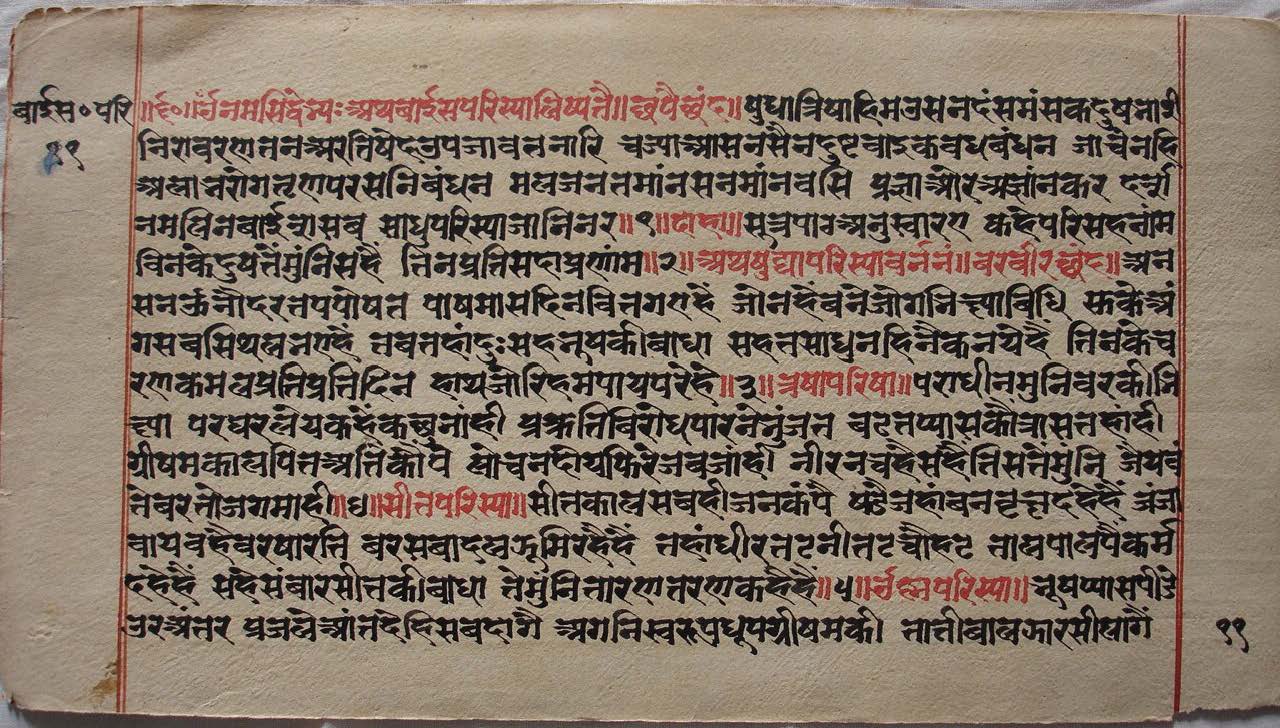 बाईस॰परि
॥र्द॰॥र्उनमसिद्धेभ्यः अथबाईसपरिस्यालिष्यतै॥छपैछंद॥षुधात्रिषाहिमउसनदंसमंसकदुषभारी
११
निरावरणतनअरतिषेदउपजावतनारि चर्ज्याआसनसैनदुष्टबाइकबधबंधन जाचैनहि
अलाभरोगतृणपरसनिबंधन मलजनतमांनसनमांनबसि प्रज्ञाऔरअज्ञांनकर दर्श
नमलिनबाईससब साधुपरिस्याजानिनर॥१॥दोहा॥सूत्रपाठअनुस्वारए कहेपरिसहनांम
तिनकेदुषजेमुंनिसहैं तिनप्रतिसदाप्रणांम॥२॥अथषुद्यापरिस्यावर्ननं॥बरबीरछंद॥अन
सनऊनौदरतपपोषत पाषमासदिनबितगएहैं जोनहैंबनेजोगनिछ्याबिधि सूकैअं
गसबसिथलभएहैं तबतहांदुःसहभूषकीबाधा सहतसाधुनहिनैकनयेहै तिनकेच
रणकमलप्रतिप्रतिदिन हाथजोरिहमपायपरेहैं॥३॥त्रषापरिषा॥पराधीनमुनिबरकीभि
छ्या परघरलेयकहैंकछुनांही प्रकृतिबिरोधपारनेभुंजत बढतप्यासकीत्रासतहांही
ग्रीषमकालपित्तअतिकोपै लोचनदोयफिरेजबजांही नीरनचहैसहैंतिसतेमुनि जैयवं
तेबरतोजगमाही॥४॥सीतपरिस्या॥सीतकालसबहीजनकंपै षडेजहांबनबृछदहेहैं झंझा
बायबहैबरषारति बरसतबादलझूमिरहैहैं तहांधीरतटनीतटचौहट तालपालपैकर्म
दहैहैं सहैसंभारसीतकीबाधा तेमुंनितारणतरणकहैहैं॥५॥र्उस्नपरिस्या॥भूषप्यासपीडै
उरअंतर प्रजलैआंतदेहिसबदागै अगनिस्वरूपधूपग्रीषमकी तातीबालझालसीलागै
११